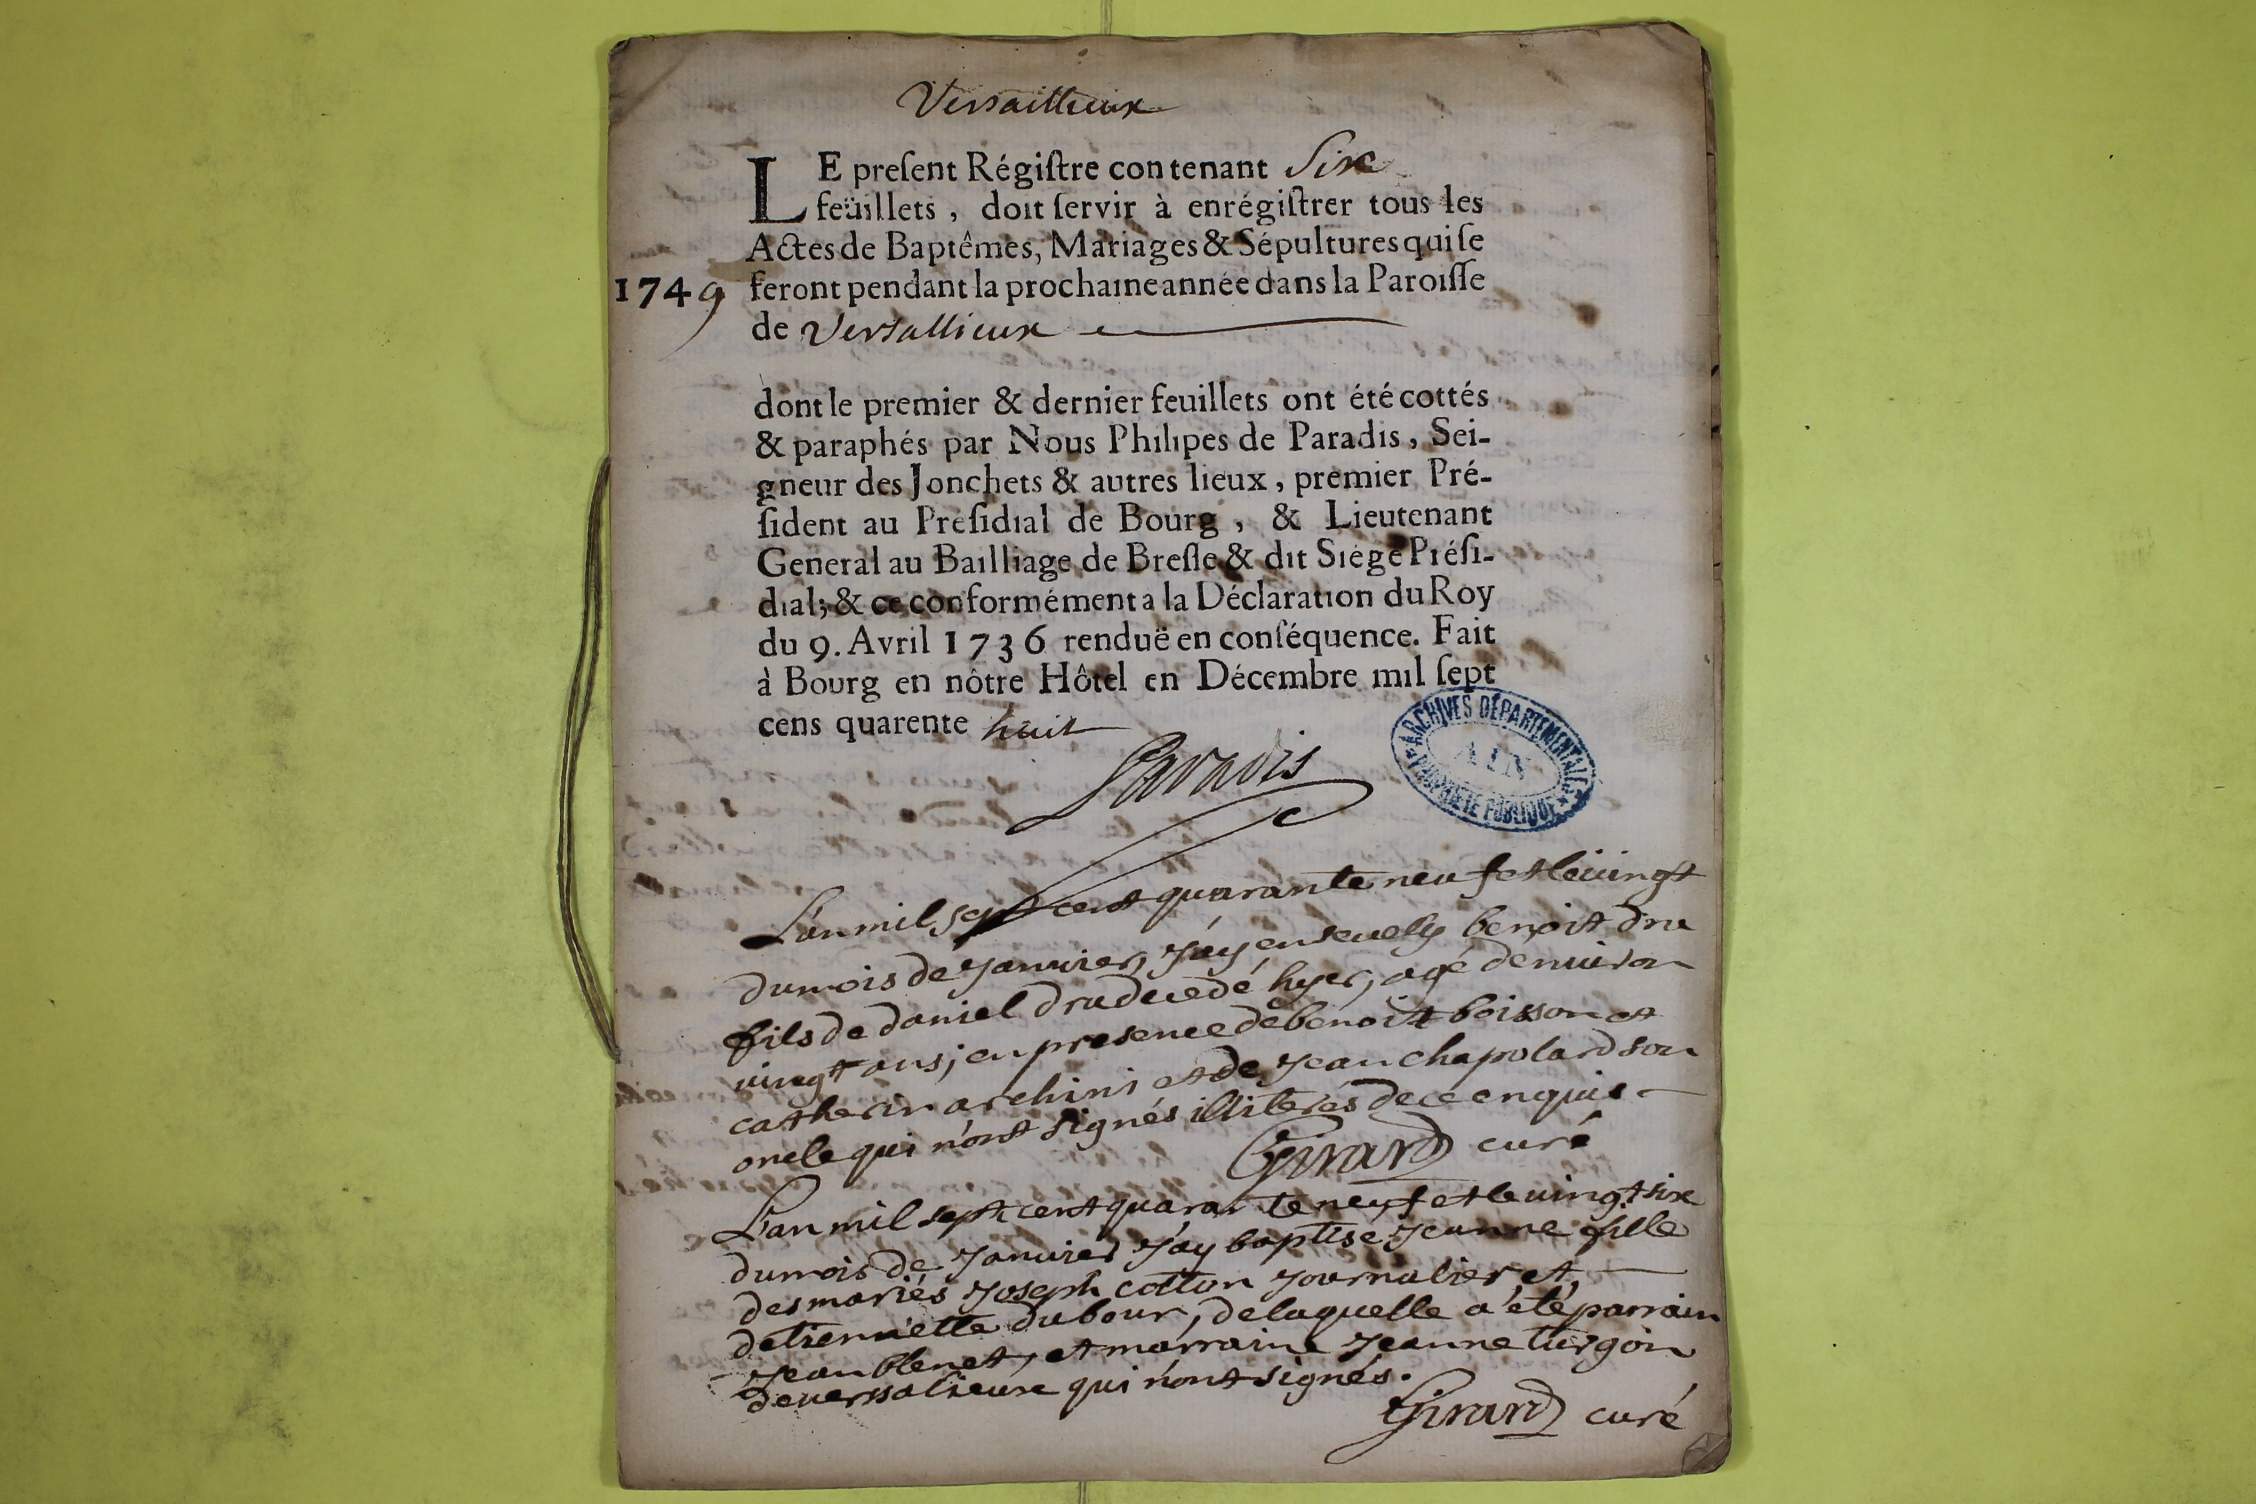 Versaillieux
LE preſent Régiſtre contenant Six
feüillets, doit ſervir à enrégiſtrer tous les
Actes de Baptêmes, Mariages & Sépultures qui ſe
1749 feront pendant la prochaine année dans la Paroiſſe
de Versallieux
dont le premier & dernier feuillets ont été cottés
& paraphés par Nous Philipes de Paradis, Sei-
gneur des Jonchets & autres lieux, premier Pré-
ſident au Préſidial de Bourg, & Lieutenant
General au Bailliage de Breſſe & dit Siége Préſi-
dial; & ce conformément a la Déclaration du Roy
du 9. Avril 1736 renduë en conſéquence. Fait
à Bourg en nôtre Hôtel en Décembre mil ſept
cens quarente huit
Paradis
ARCHIVES DÉPARTEMENTALES
AIN
PROPRIÉTÉ PUBLIQUE
L'an mil sept cent quarante neuf et le vingt
du mois de Janvier, J'ay ensevely benoit dru
fils de daniel dru decedé hyer, agé denviron
vingt ans, en presence de benoit boisson et
catherin archini et de Jean chapolard son
oncle qui n'ont signés illiterés de ce enquis
Girard curé
L'an mil sept cent quarante neuf et le vingt six
du mois de Janvier J'ay baptisé Jeanne fille
des mariés Joseph cotton Journalier et,
detiennette dubour, de laquelle a été parrain
Jean blenet, et marraine Jeanne turgon
de versalieux qui n'ont signés.
Girard curé